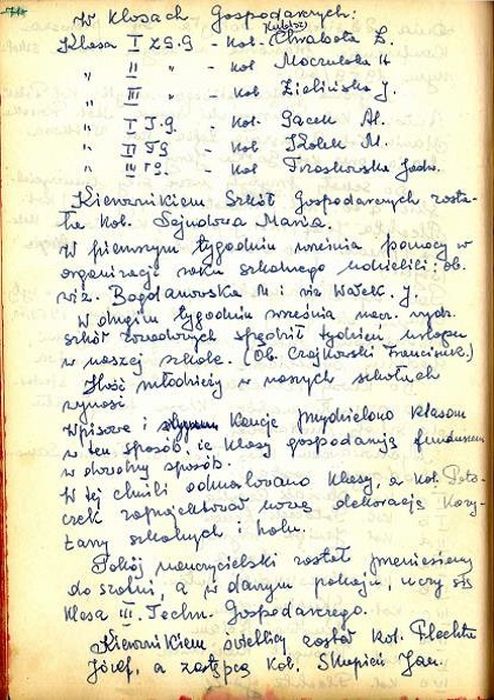 W klasach Gospodarczych:
Klasa I Z.S.G - kol. (Kubisz) Chrobota Z.
" II " - kol Moczulska H
" III " - kol Zielińska J.
" I T.G. - kol. Gacek Al.
" II TG - kol Szołek M.
" III TG. - kol Jadw.
Kierownikiem Szkół Gospodarczych zosta-
ła kol. Sejndowa Maria.
W pierwszym tygodniu września pomocy w
organizacji roku szkolnego udzielili: ob.
wiz. Bogdanowska M i wiz Wałek. J.
W drugim tygodniu września nacz. wydz.
szkół zawodowych spędził tydzień urlopu
w naszej szkole. (Ob. Czajkowski Franciszek.)
Ilość młodzieży w naszych szkołach
wynosi
Wpisowe i kaucje przydzielono klasom
w ten sposób, że klasy gospodarują funduszem
w dowolny sposób.
W tej chwili odmalowano klasy, a kol. Pota-
czek zaprojektował nową dekorację kory-
tarzy szkolnych i holu.
Pokój nauczycielski został przeniesiony
do szatni, a w danym pokoju, uczy się
klasa III. Techn. Gospodarczego.
Kierownikiem świetlicy został kol. Plechta
Józef, a zastępcą kol. Skupień Jan.